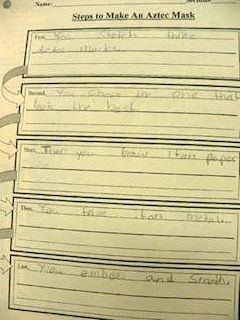 Name:
Steps to Make An Aztec Mask
First, You Sketch three
Second, You chose the one that
look the best.
Next, Then you draw it on paper
Then, You trace it on metal.
Last, You emboss and smooth.